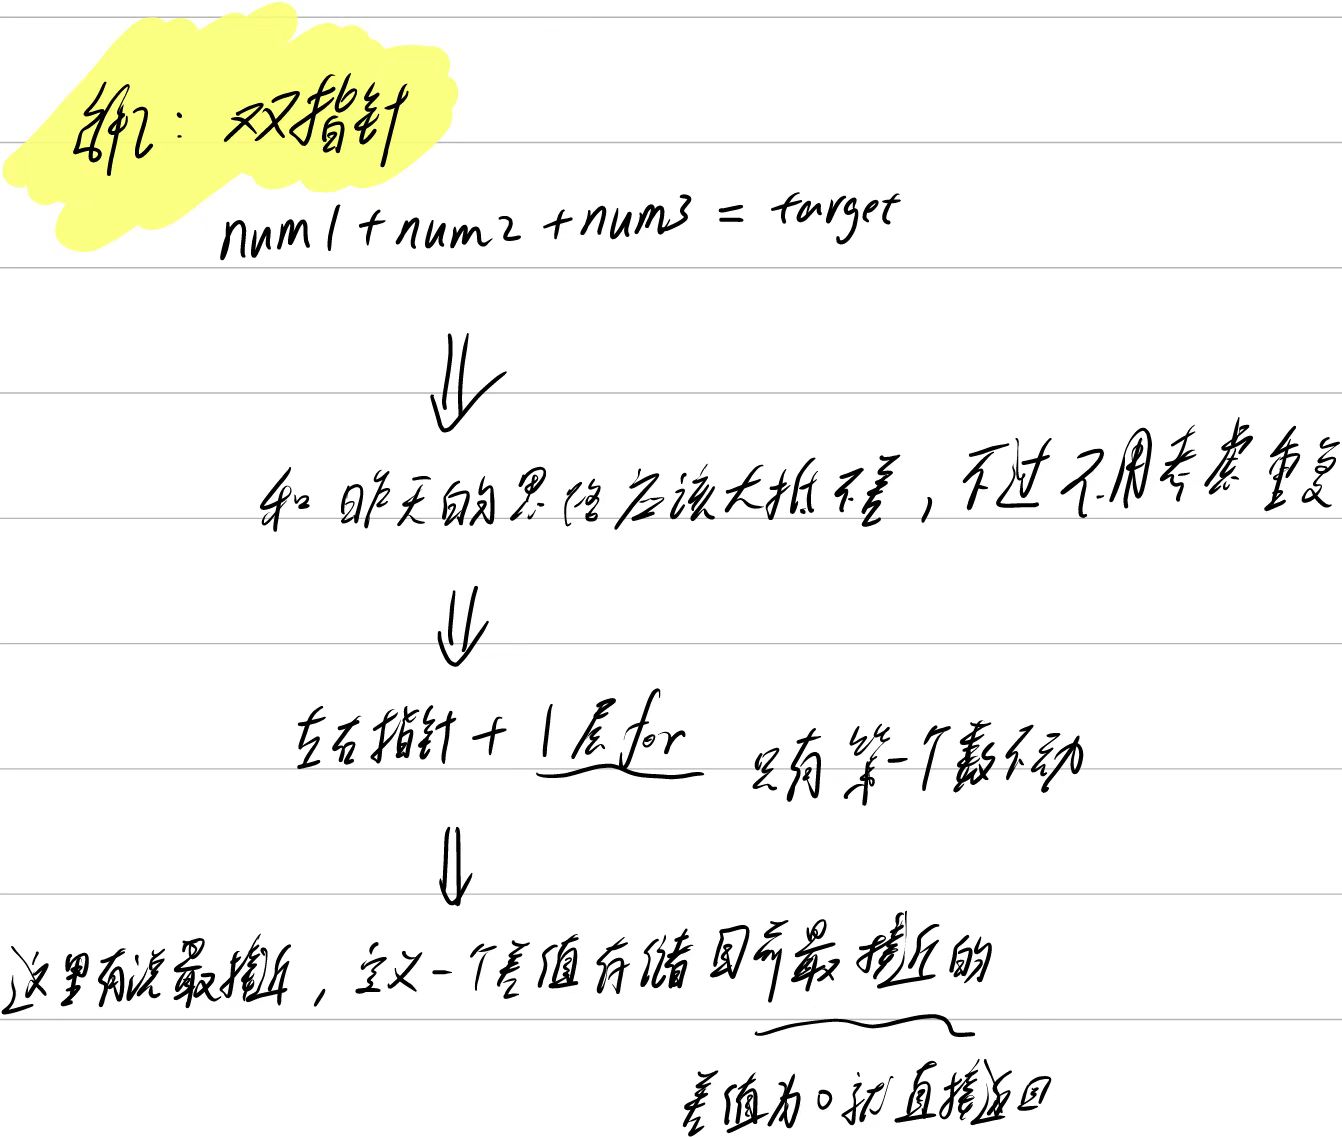 解2：双指针
num1+num2+num3=target
和昨天的思路应该大抵不差，不过不用考虑重复
左右指针+1层for 只有第一个数不动
这里有说最接近，定义一个差值存储目前最接近的
差值为0就直接返回